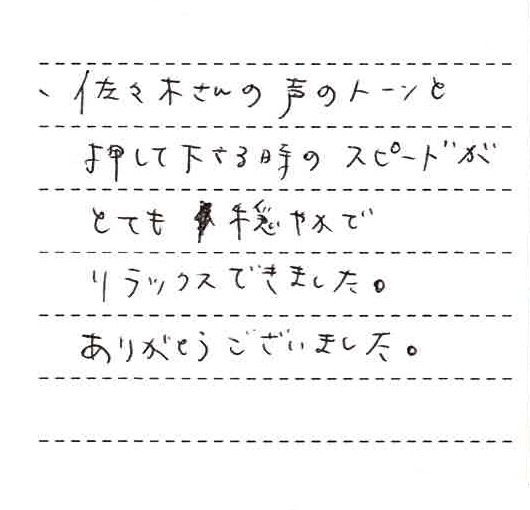 、佐々木さんの声のトーンと
押して下さる時のスピードが
とても穏やかで
リラックスできました。
ありがとうございました。